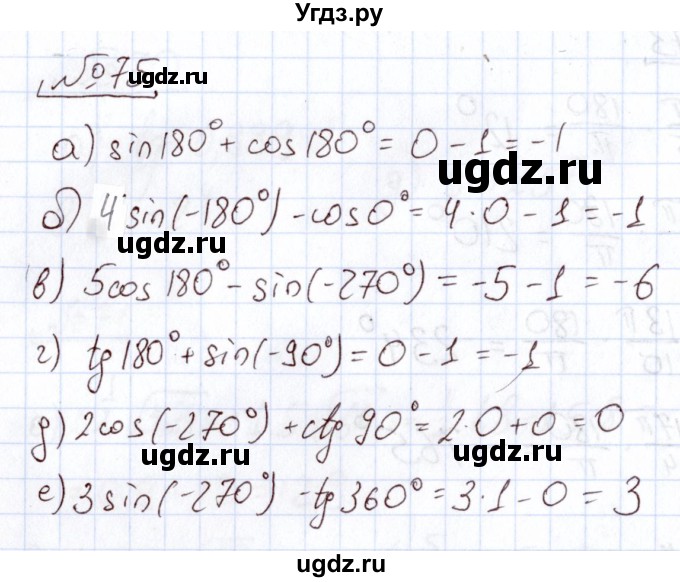 Угдз.ру
№ 75
ugdz.ru
а) sin180° + cos180° = 0 - 1 = -1
ugdz.ru ugdz.ru
б) 4 sin(-180°) - cos0° = 4·0 - 1 = -1
ugdz.ru
в) 5cos180° - sin(-270°) = -5 - 1 = -6
ugdz.ru ugdz.ru
г) tg180° + sin(-90°) = 0 - 1 = -1
д) 2cos(-270°) + ctg90° = 2·0 + 0 = 0
ugdz.ru ugdz.ru
е) 3sin(-270°) - tg360° = 3·1 - 0 = 3
ugdz.ru